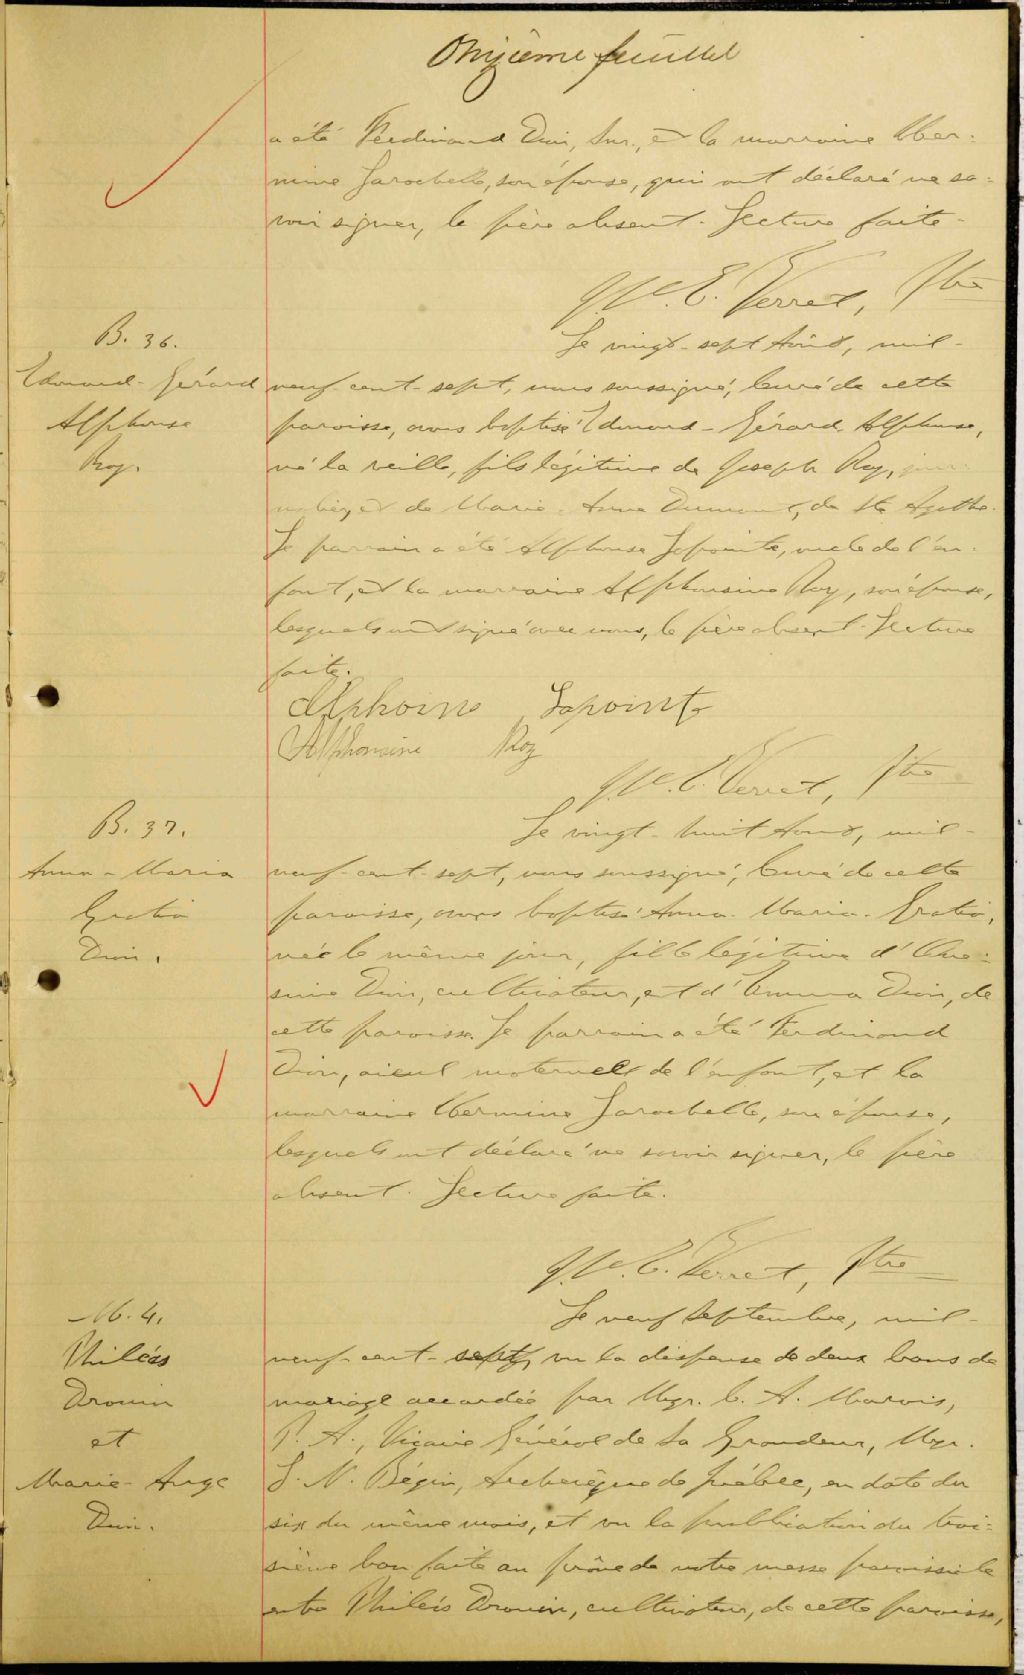 Onzième feuillet
a été Ferdinand Dion, Snr., et la marraine Her-
mine Larochelle, son épouse, qui ont déclaré ne sa-
voir signer, le père absent. Lecture faite.
J. E. Verret, Ptre
B. 36.
Edouard-Gérard
Alphonse
Roy.
Le vingt-sept Août, mil-
neuf-cent-sept, nous soussigné, Curé de cette
paroisse, avons baptisé Edouard-Gérard-Alphonse,
né la veille, fils légitime de Joseph Roy, jour-
nalier, et de Marie-Anne Dumont, de Ste Agathe.
Le parrain a été Alphonse Lapointe, oncle de l'en-
fant, et la marraine Alphonsine Roy, son épouse,
lesquels ont signé avec nous, le père absent. Lecture
faite.
Alphoins Lapointe
Alphonsine Roy
J. E. Verret, Ptre
B. 37.
Anna-Maria
Gratia
Dion.
Le vingt-huit Août, mil-
neuf-cent-sept, nous soussigné, Curé de cette
paroisse, avons baptisé Anna-Maria-Gratia,
née le même jour, fille légitime d'Oné-
sime Dion, cultivateur, et d'Emma Dion, de
cette paroisse. Le parrain a été Ferdinand
Dion, aïeul maternel de l'enfant, et la
marraine Hermine Larochelle, son épouse,
lesquels ont déclaré ne savoir signer, le père
absent. Lecture faite.
J. E. Verret, Ptre
M. 4.
Philéas
Drouin
et
Marie-Ange
Dion.
Le neuf Septembre, mil-
neuf-cent-sept, vu la dispense de deux bans de
mariage accordée par Mgr. C. A. Marois,
P. A., Vicaire Général de Sa Grandeur, Mgr.
L. N. Bégin, Archevêque de Québec, en date du
six du même mois, et vu la publication du troi-
sième ban faite au prône de notre messe paroissiale
entre Philéas Drouin, cultivateur, de cette paroisse,